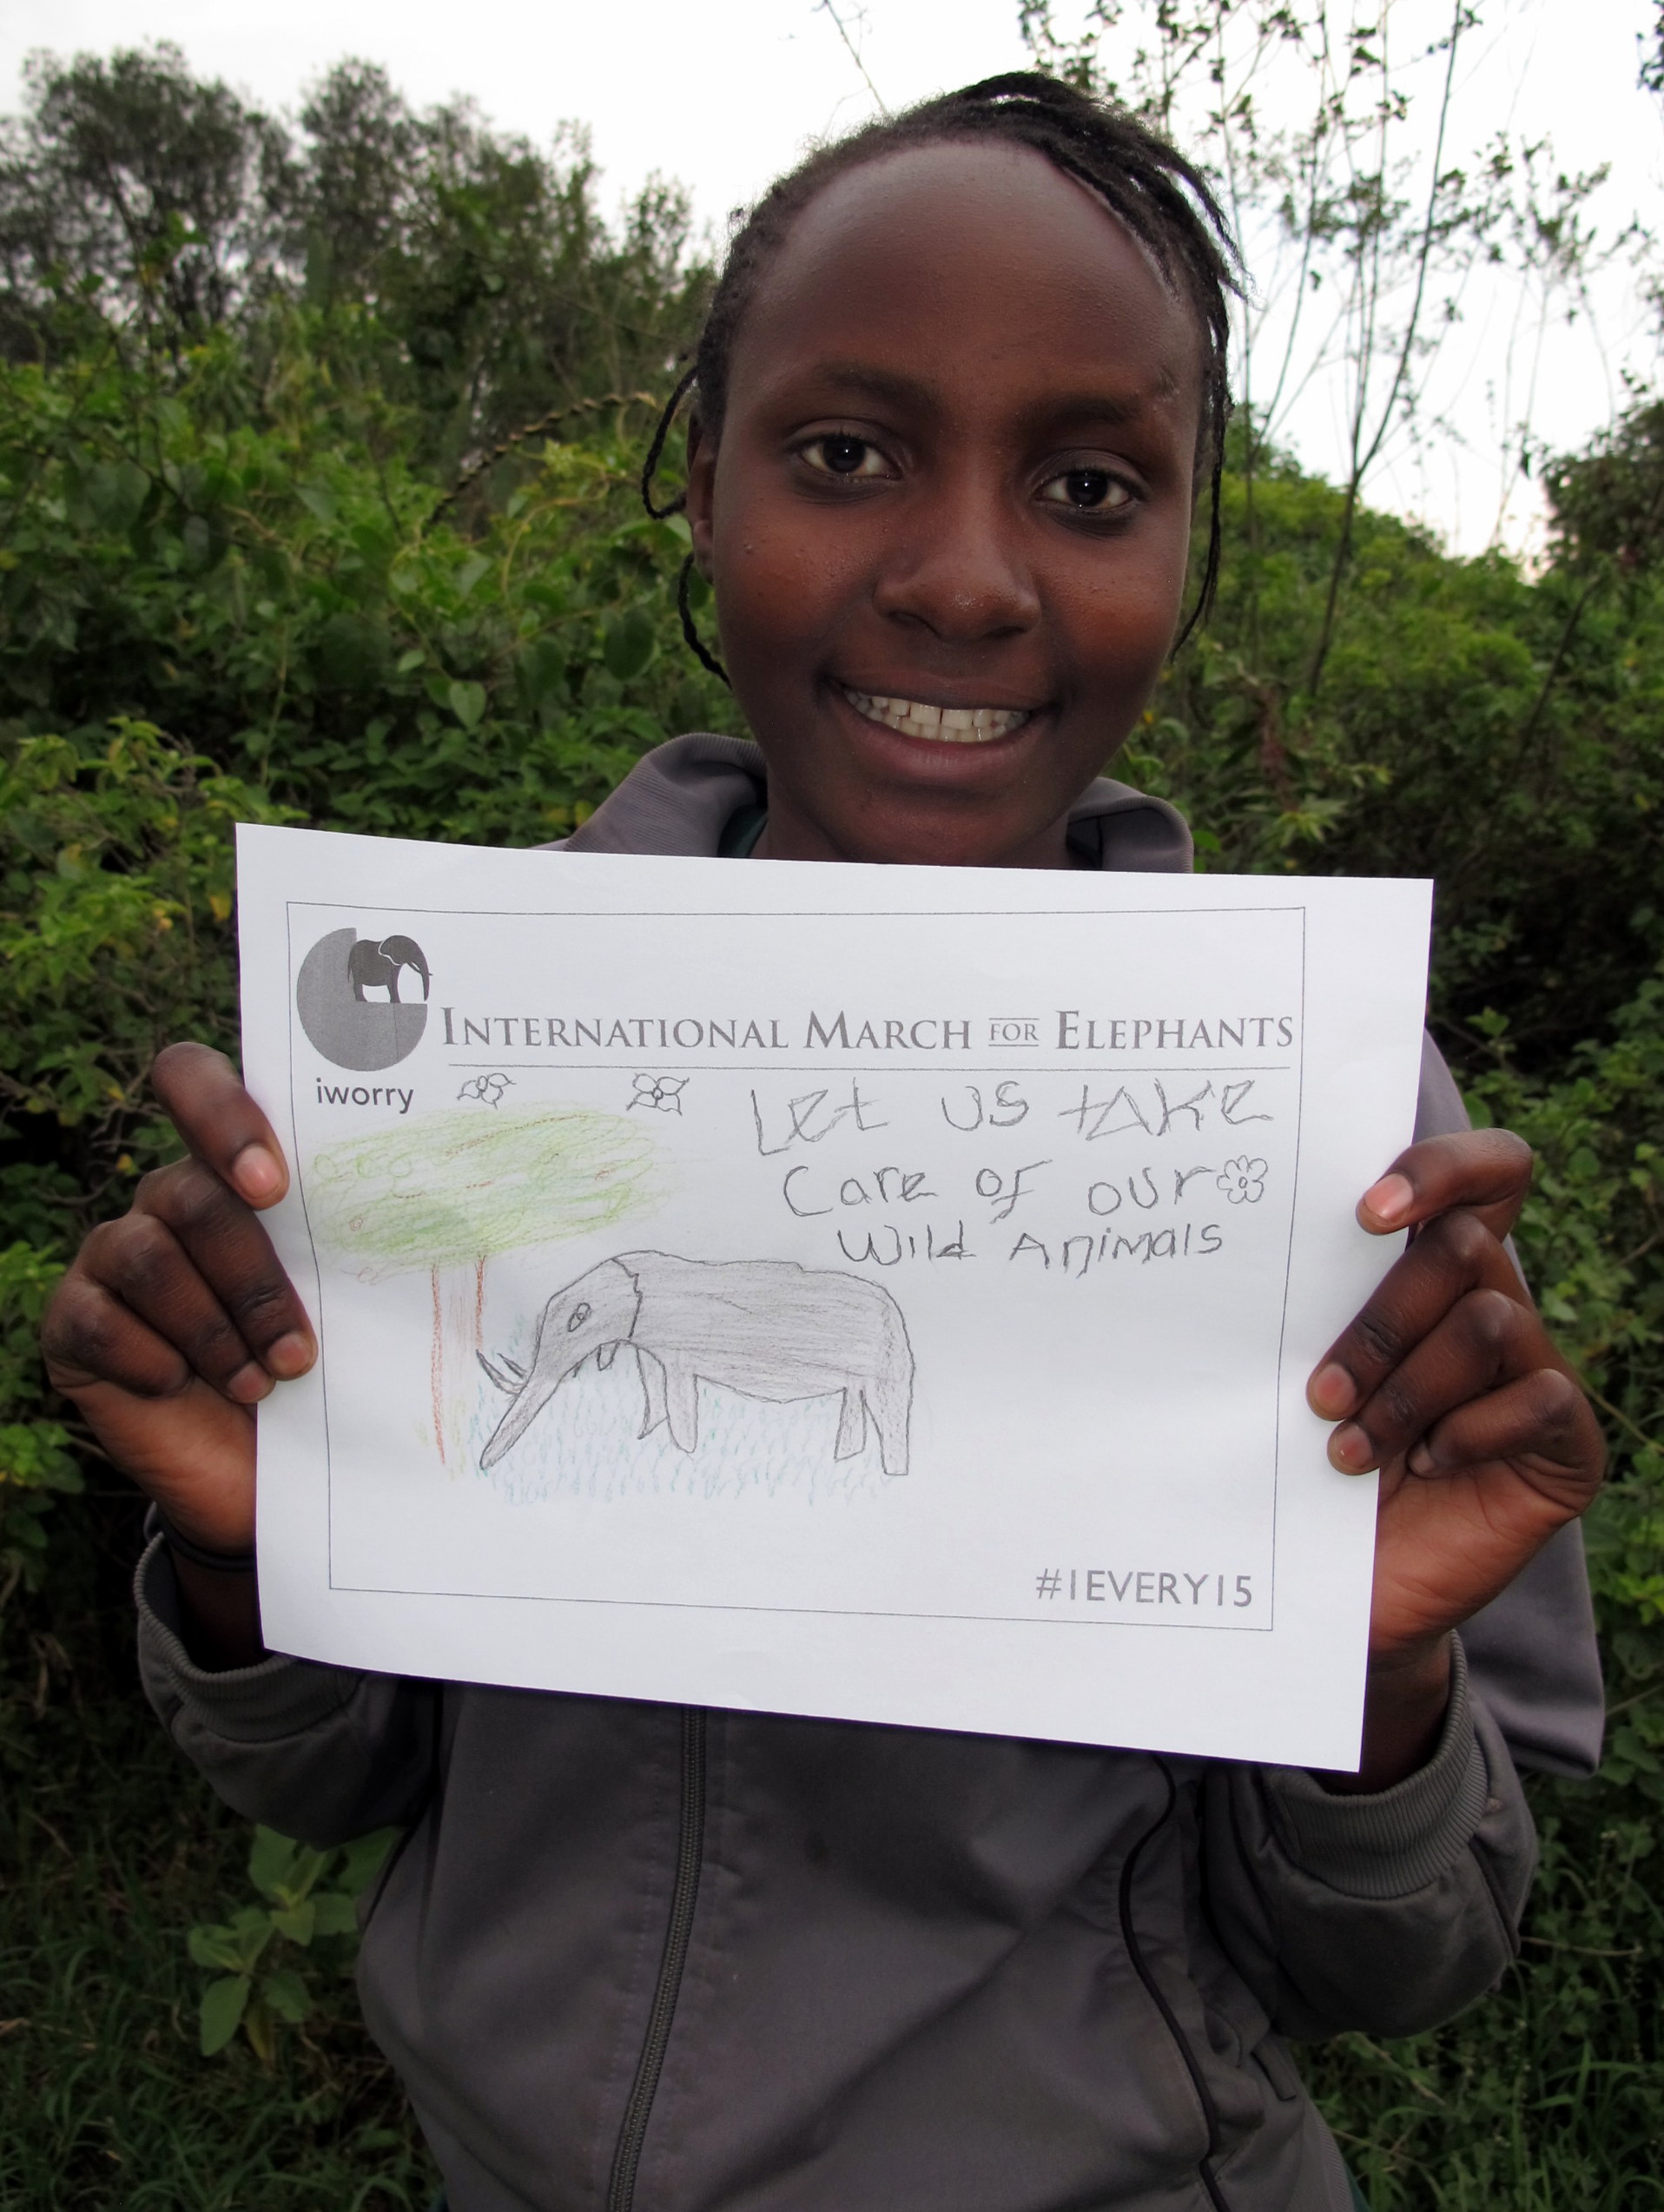 INTERNATIONAL MARCH FOR ELEPHANTS
iworry
Let us tAke
Care of our
Wild Animals
#1EVERY15